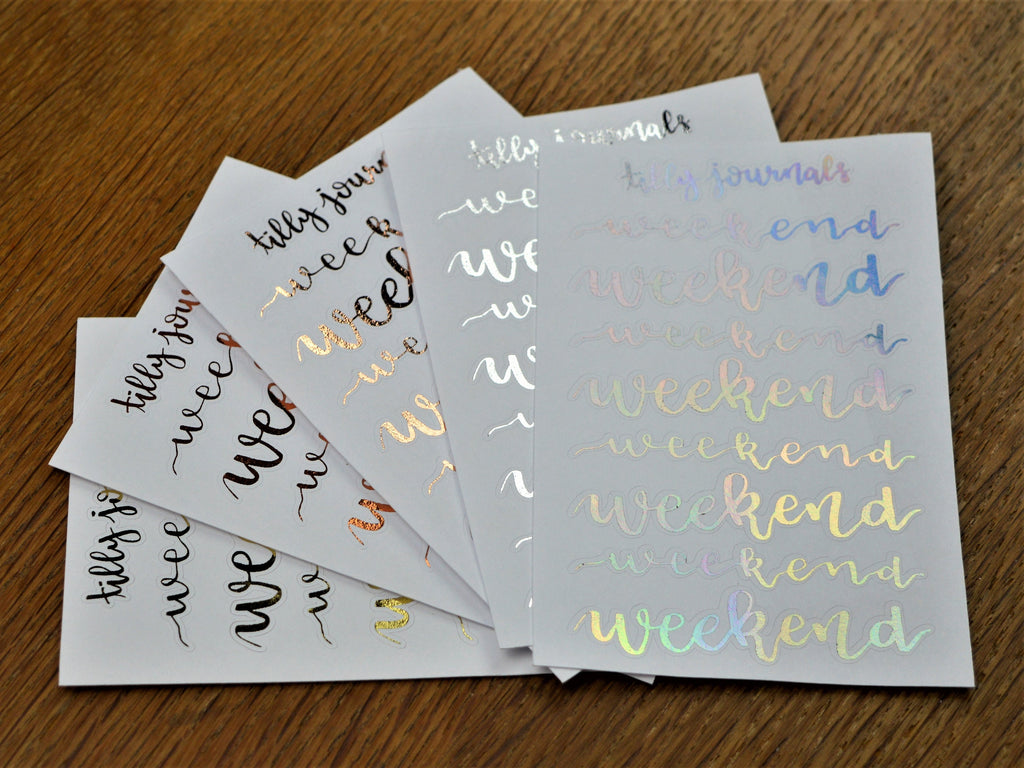 tilly jo
wee
we
w
tilly jou
wee
wee
we
we
tilly journ
week
week
we
w
tilly journals
we
we
we
we
w
tilly journals
weekend
weekend
weekend
weekend
weekend
weekend
weekend
weekend